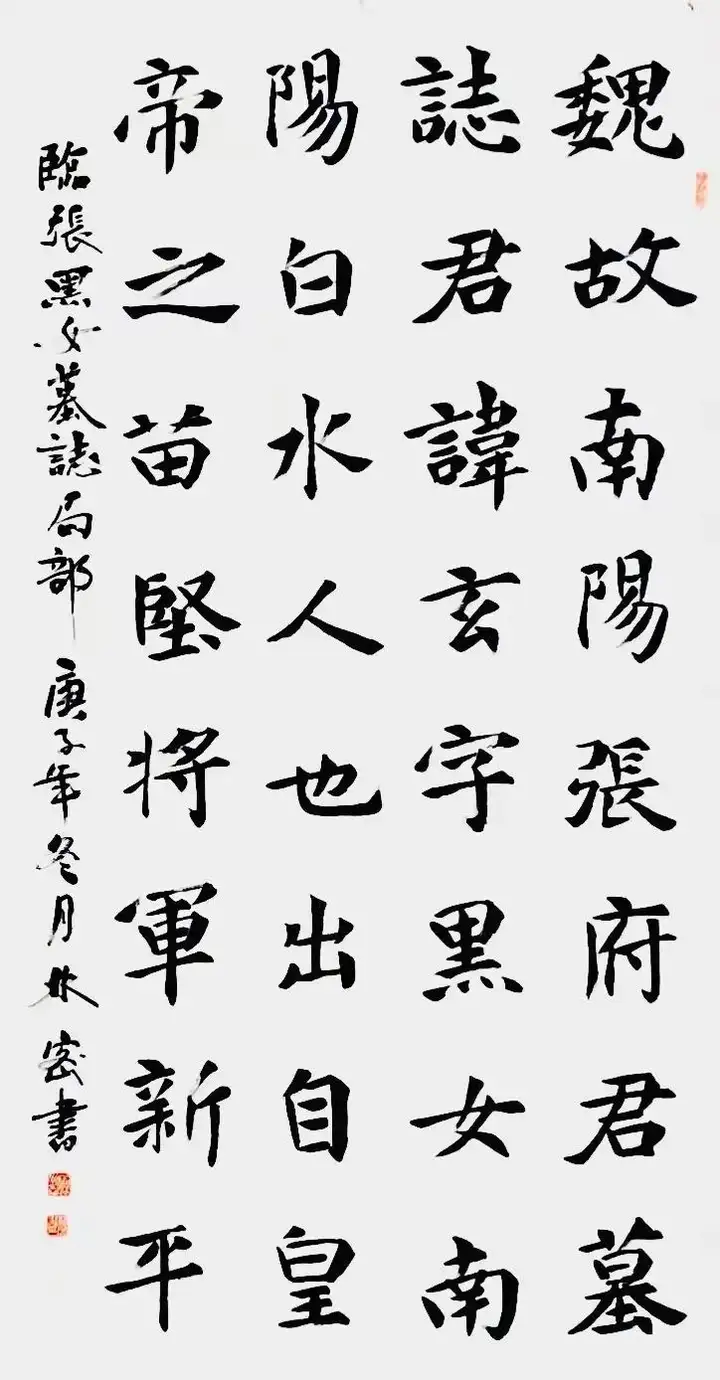 魏故南陽張府君墓
誌君諱玄字黑女南
陽白水人也出自皇
帝之苗堅将軍新平
臨張黑女墓誌局部庚子年冬月林密書